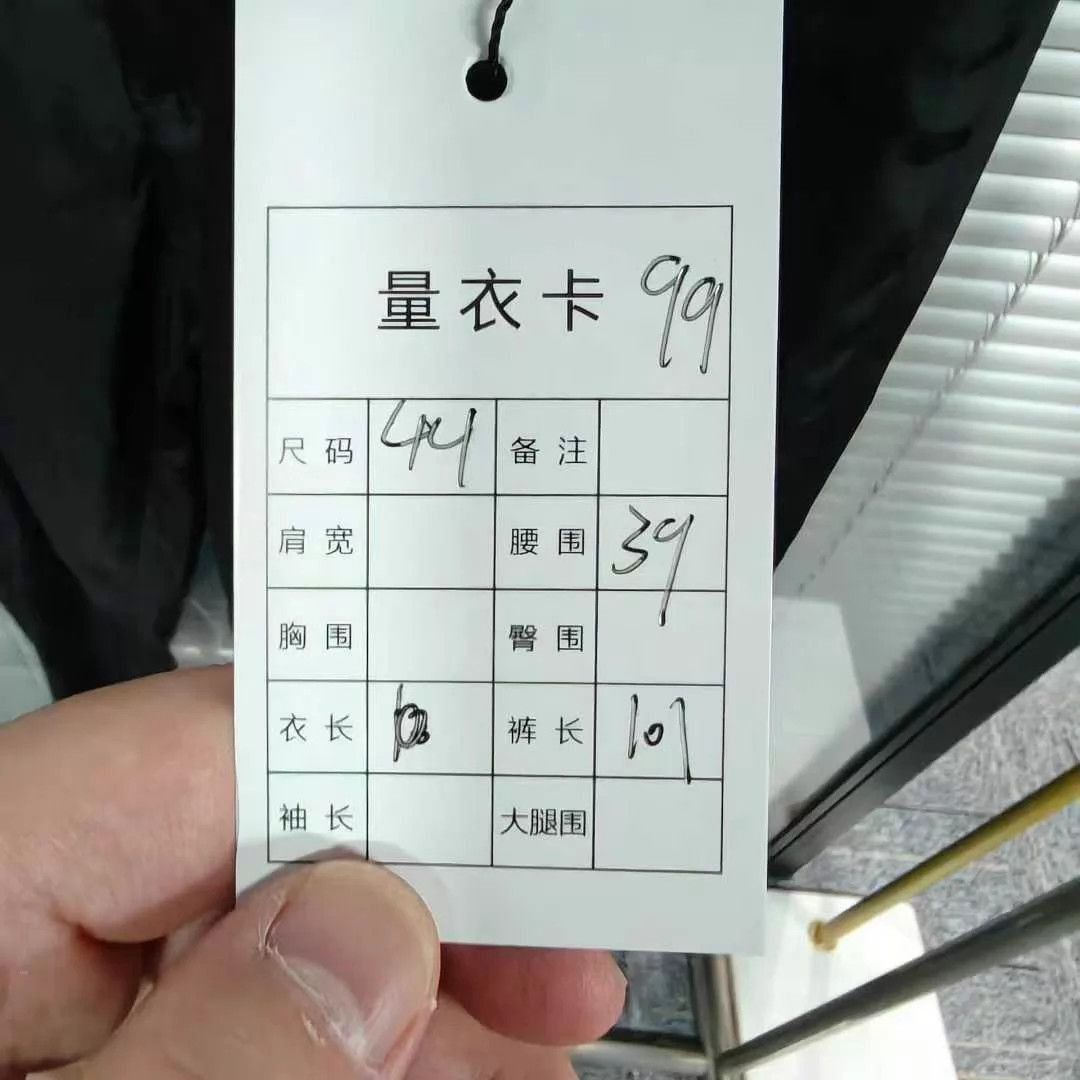 量衣卡 99
尺码 44 备注
肩宽 腰围 39
胸围 臀围
衣长 裤长 101
袖长 大腿围